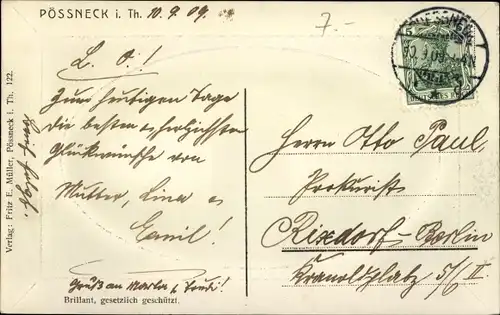 PÖSSNECK i. Th. 10. 9. 09.
7.-
L. O.!
Zum heutigen Tage
die besten & herzlichsten
Glückwünsche von
Mutter, Lina &
Emil!
Gruß an Marta & Trudi!
Brillant, gesetzlich geschützt.
Verlag: Fritz E. Müller, Pössneck i. Th. 122.
Brief folgt.
5
Herrn Otto Paul,
Prokurist
Rixdorf-Berlin
Kranoldplatz 5/II